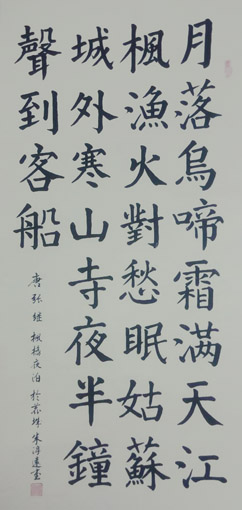 月落烏啼霜滿天江
楓漁火對愁眠姑蘇
城外寒山寺夜半鐘
聲到客船
唐張继楓橋夜泊於